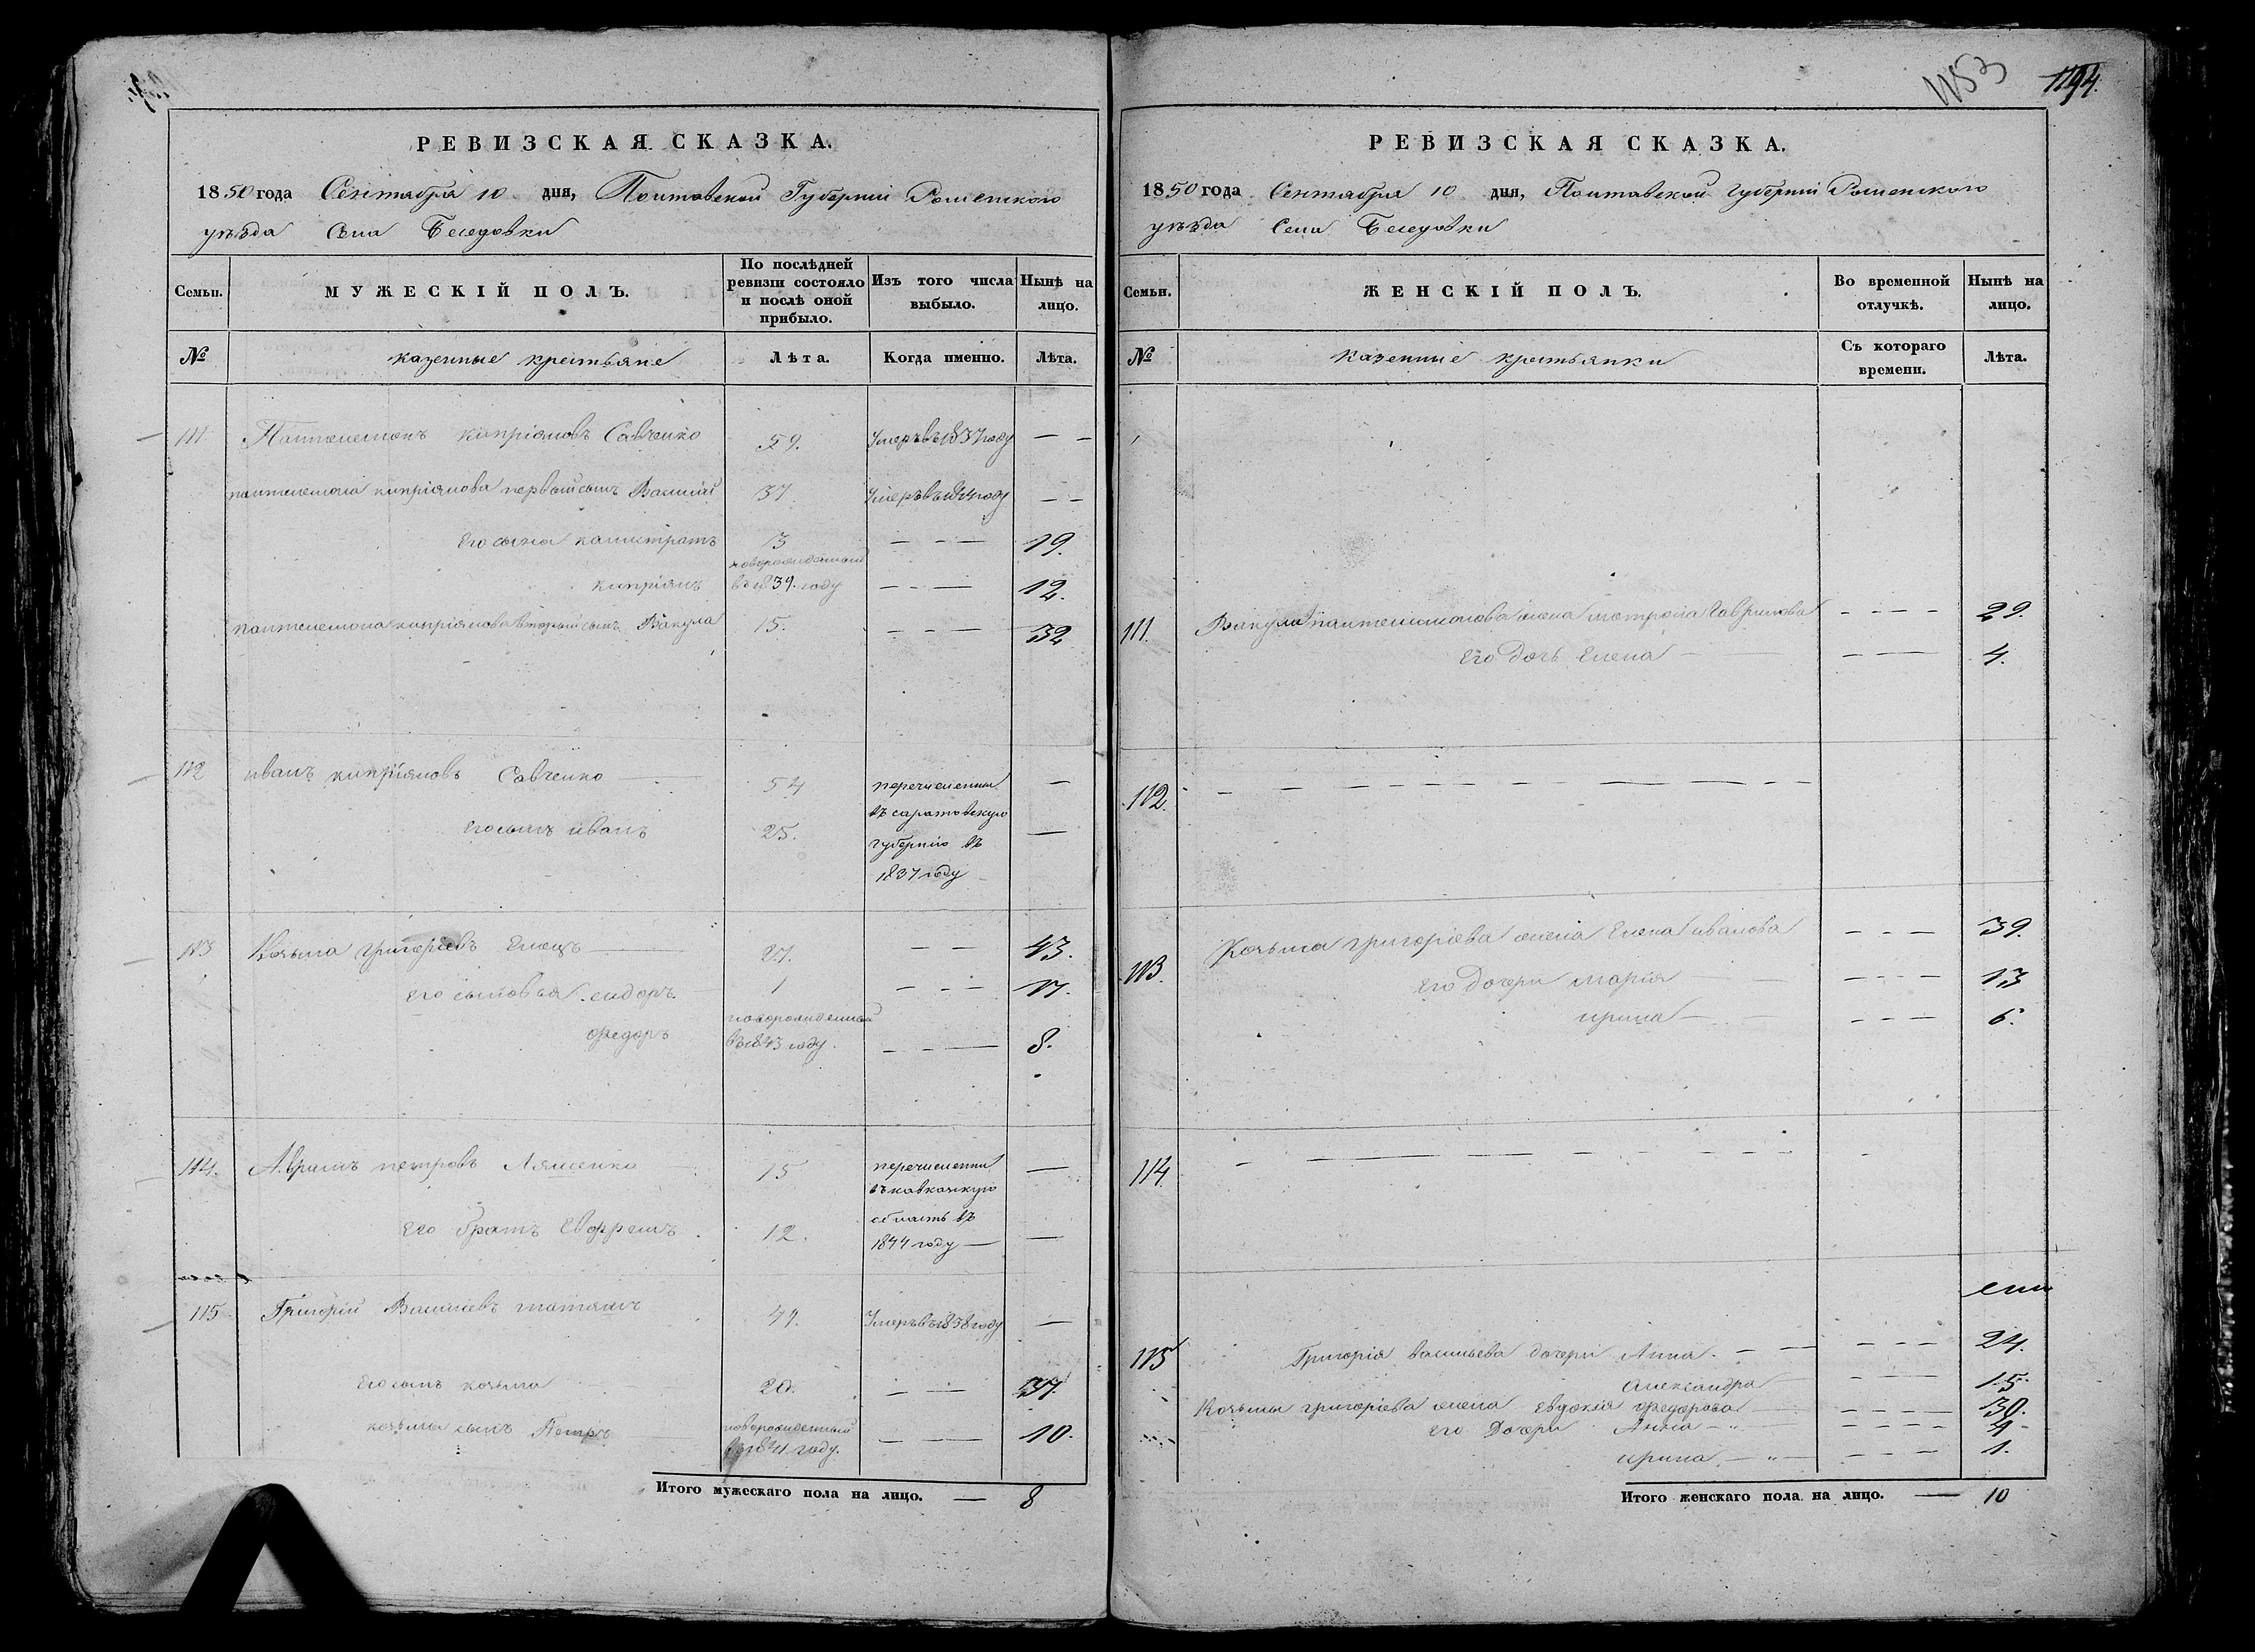 1153 1194.
РЕВИЗСКАЯ СКАЗКА.
1850 года Сентября 10 дня, Полтавской Губерніи Роменского
уѣзда Села Беседовки
Семьи. МУЖЕСКІЙ ПОЛЪ. По послѣдней ревизіи состояло и послѣ оной прибыло. Изъ того числа выбыло. Нынѣ на лицо.
№ казенные крестьяне Лѣта. Когда именно. Лѣта.
111 Пантелемонъ киприяновъ Савченко 59. Умеръ въ 1837 году — —
пантелемона киприянова первый сынъ Василій 37 Умеръ въ году — —
Его сыны калистратъ 3 — - — 19.
киприянъ новорожденный въ 1839. году — - — 12.
пантелемона киприянова вторый сынъ Вакула 15. - - — 32
112 иванъ киприяновъ Савченко 54 перечислены —
въ саратовскую
его сынъ иванъ 25. губернію въ —
1837 году
113 Козьма григорьевъ Елецъ 27. — — 43.
его сыновья сидоръ 1 — - — 17.
федоръ новорожденный въ 1843 году. — - — 8.
114. Аврамъ петровъ Ляшенко 15 перечислены —
въ кавказкую
его братъ Евфремъ 12. область въ —
1844 году —
115 Григорій Василіевъ 41. Умеръ въ 1838 году —
его сынъ козьма 20. — — 37.
козьмы сынъ Петръ новорожденный въ 1841 году. — — 10.
Итого мужескаго пола на лицо. — 8
РЕВИЗСКАЯ СКАЗКА.
1850 года Сентября 10 дня, Полтавской губерніи Роменского
уѣзда Села Беседовки
Семьи. ЖЕНСКІЙ ПОЛЪ. Во временной отлучкѣ. Нынѣ на лицо.
№ казенные крестьянки Съ котораго времени. Лѣта.
111. Вакулы пантелимонова жена матрона Гаврилова - — - — 29.
Его дочь Елена — — - — 4.
112. - — — — — — — —
113. Козьмы григорієва жена Елена иванова — - — 39.
его дочери марія — - — 13
ирина — — - — 6.
114. - — — — — — — —
115 Григорія васильева дочери Анна. — — — - — 24.
Александра — - — 15.
Козьмы григорієва жена Евдокія федорова — - — 30.
его Дочери Анна — — - — 4
ирина — — - — 1.
Итого женскаго пола на лицо. — 10